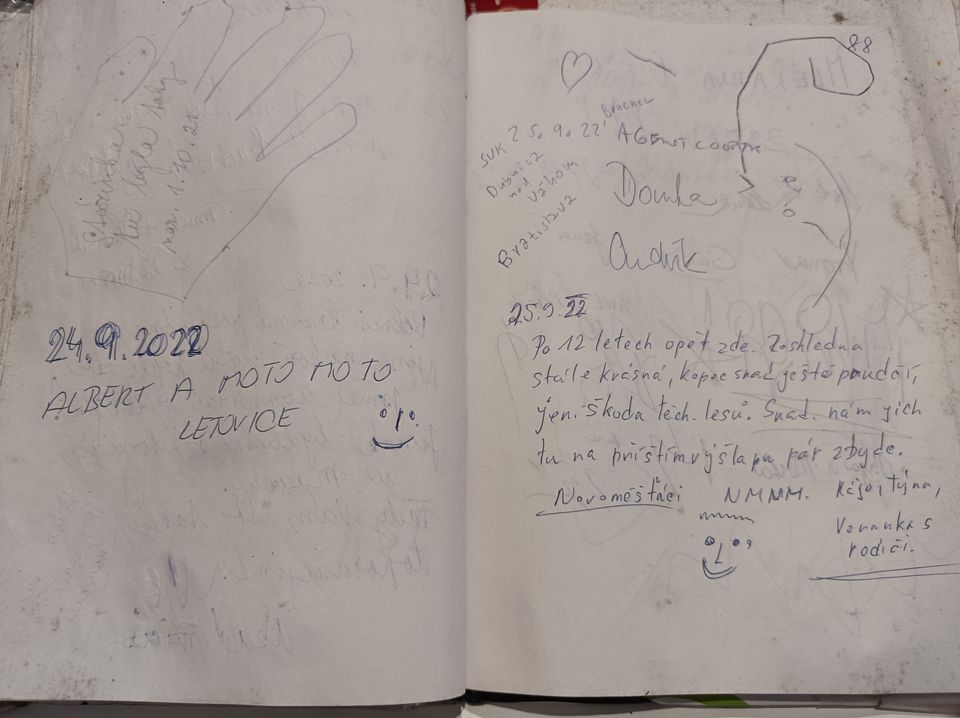 nar. 1.10.21
24.9.2022
ALBERT A MOTO MOTO
LETOVICE
88
Brněnec
SVK 25.9.22
AGENT COOPER
Dubnica
nad
Váhom
Bratislava
Domka
Ondrík
25.9.22
Po 12 letech opět zde. Rozhledna
stále krásná, kopec snad ještě prudčí,
jen škoda těch lesů. Snad nám jich
tu na příštím výšlapu pár zbyde.
Novoměšťáci NMNM. Kájo, týna,
Verunka s
rodiči.